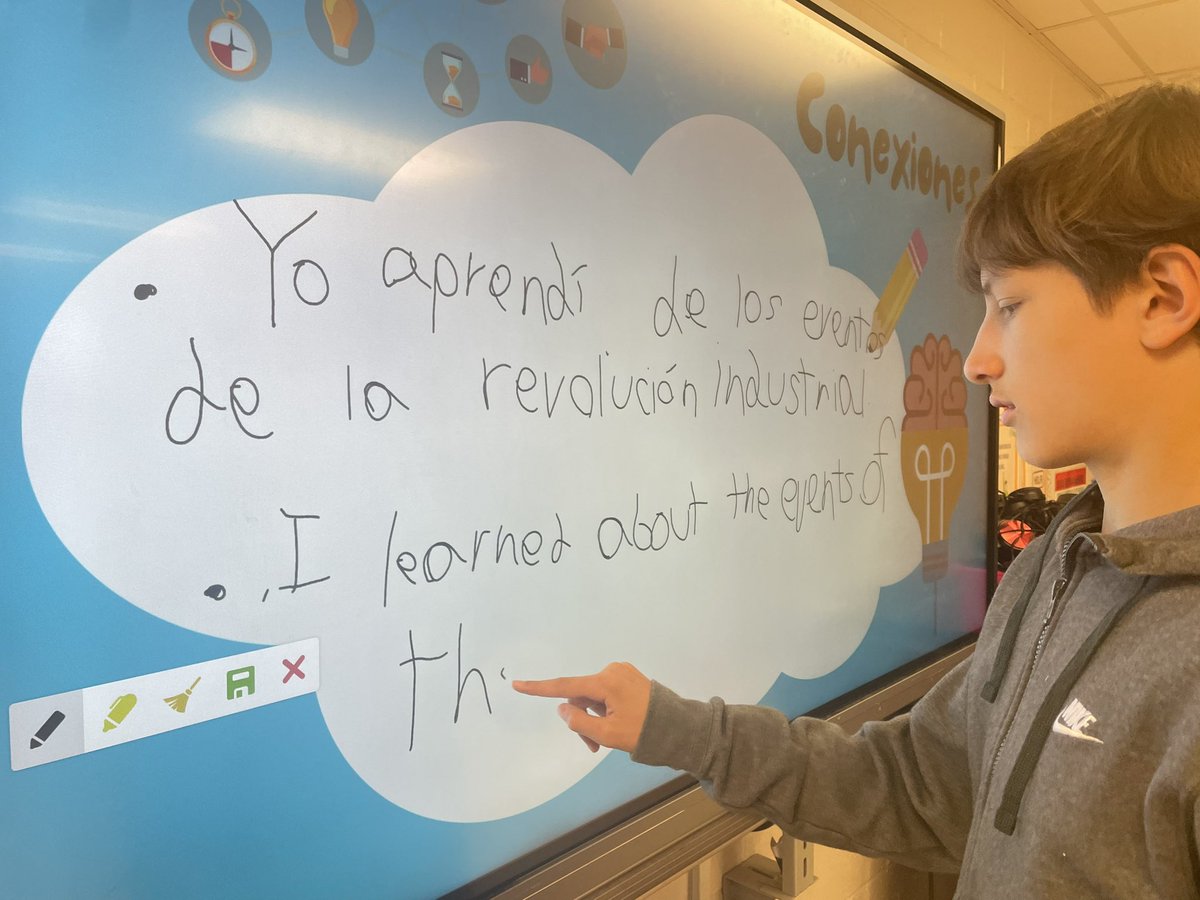 Conexiones
• Yo aprendí de los eventos
de la revolución industrial.
• I learned about the events of
th
NIKE